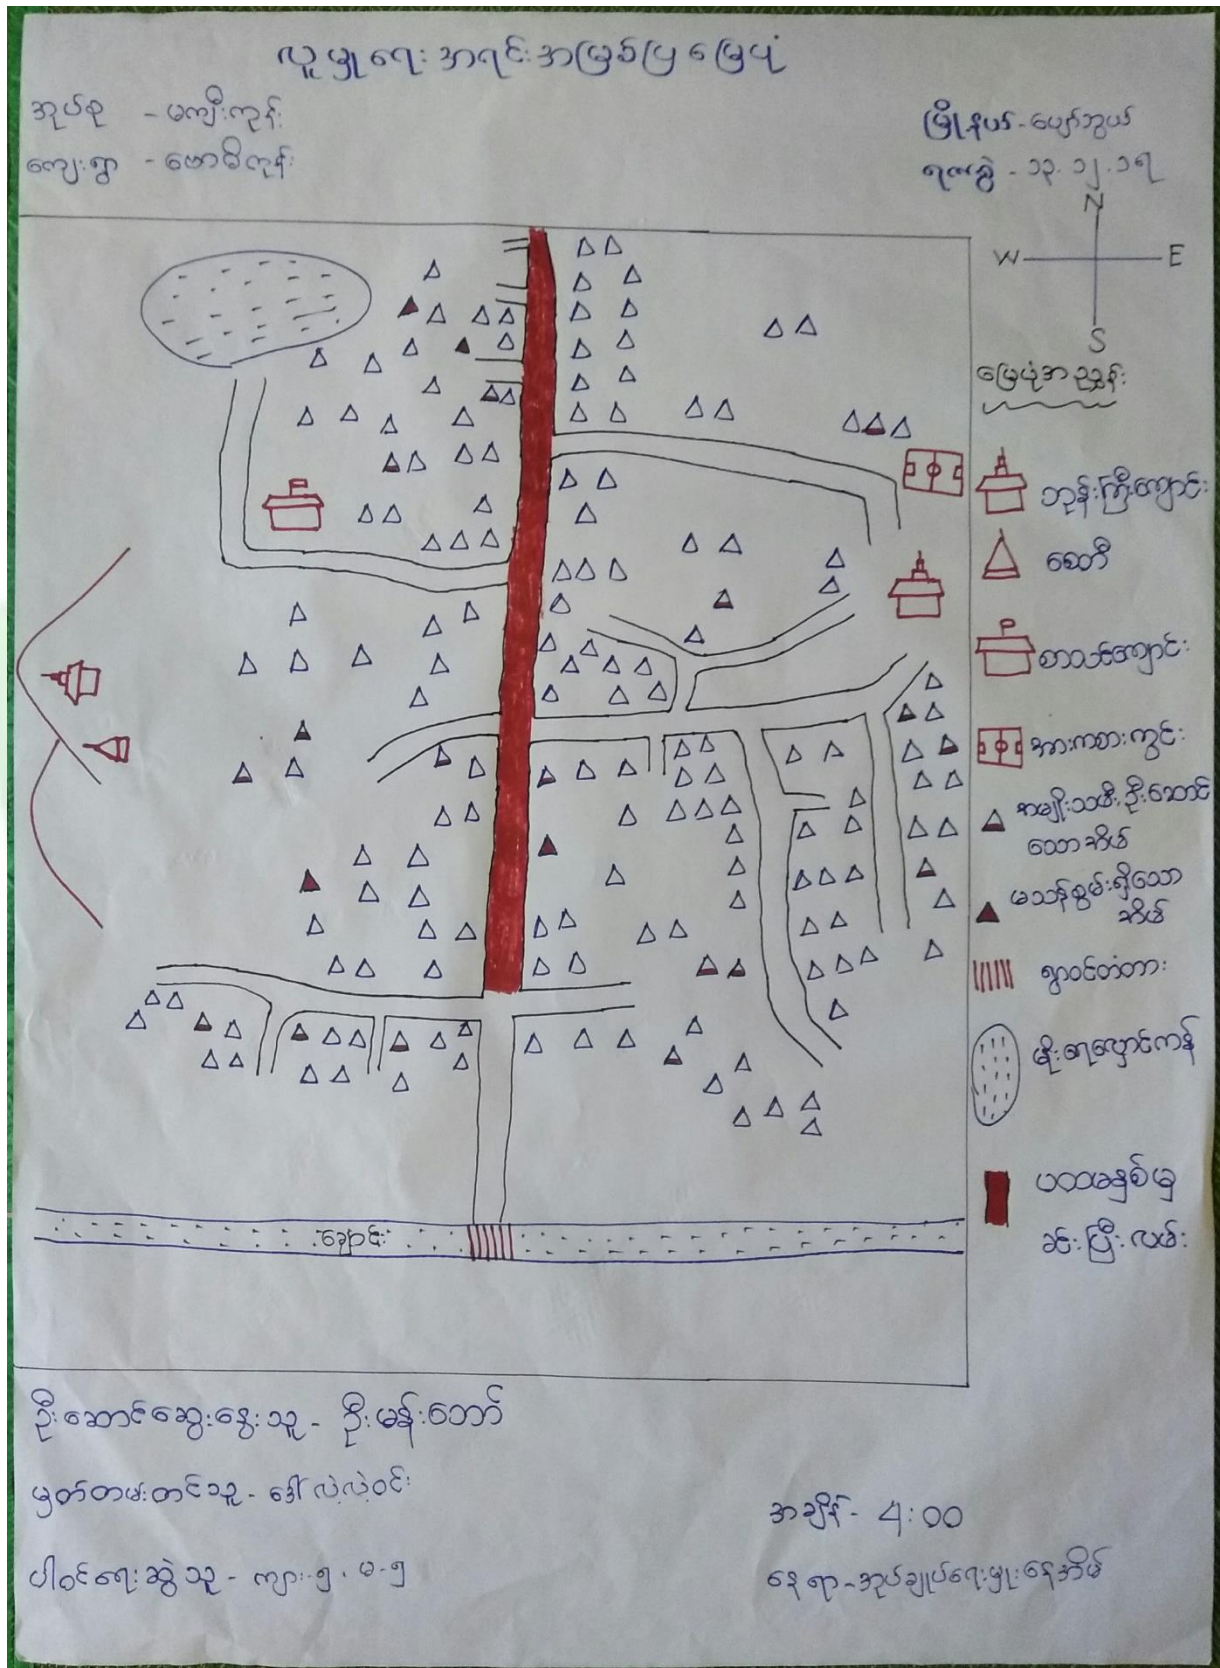 လူမှုရေးအရင်းအမြစ်ပြမြေပုံ
အုပ်စု - မကျီးကုန်း
မြို့နယ် - ပျော်ဘွယ်
ကျေးရွာ - ဗောဓိကုန်း
ရက်စွဲ - ၁၃.၁၂.၁၅
N
W E
S
မြေပုံအညွှန်း
ဘုန်းကြီးကျောင်း
စေတီ
စာသင်ကျောင်း
အားကစားကွင်း
အမျိုးသမီးဦးဆောင်
သောအိမ်
မသန်စွမ်းရှိသော
အိမ်
ရွာဝင်တံတား
မိုးရေလှောင်ကန်
ပထမနှစ်မှ
ခင်းပြီးလမ်း
ချောင်း
ဦးဆောင်ဆွေးနွေးသူ - ဦးမန်းဘော်
မှတ်တမ်းတင်သူ - ဒေါ်လဲ့လဲ့ဝင်း
အချိန် - 4:00
ပါဝင်ရေးဆွဲသူ - ကျား-၅၊ မ-၅
နေရာ - အုပ်ချုပ်ရေးမှူးနေအိမ်